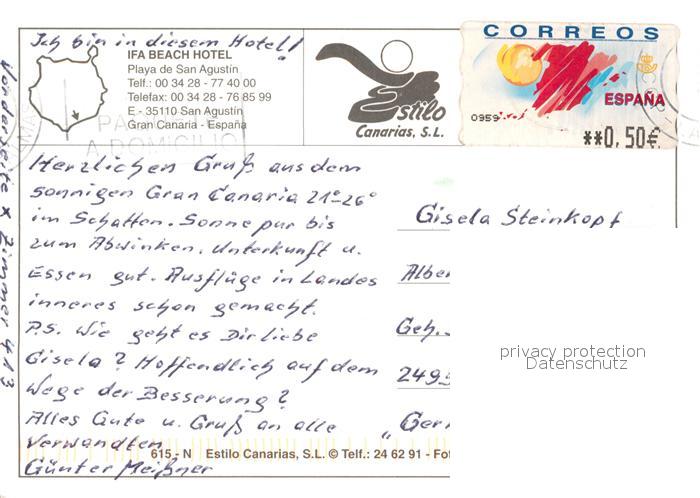 Ich bin in diesem Hotel!
IFA BEACH HOTEL
Playa de San Agustín
Telf.: 00 34 28 - 77 40 00
Telefax: 00 34 28 - 76 85 99
E - 35110 San Agustín
Gran Canaria - España
Estilo
Canarias, S.L.
CORREOS
ESPAÑA
0959
**0,50€
A DOMICILIO
Vorderseite x Zimmer 413
Herzlichen Gruß aus dem
sonnigen Gran Canaria 21°-26°
im Schatten. Sonne pur bis
zum Abwinken. Unterkunft u.
Essen gut. Ausflüge in Landes
inneres schon gemacht.
P.S. Wie geht es Dir liebe
Gisela? Hoffendlich auf dem
Wege der Besserung?
Alles Gute u. Gruß an alle
Verwandten
Günter Meißner
Gisela Steinkopf
Alber
Geh.
249
"Ger
privacy protection
Datenschutz
615 - N Estilo Canarias, S.L. © Telf.: 24 62 91 - Fot